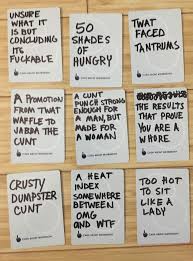 UNSURE
WHAT IT
IS BUT
CONCLUDING
ITS
FUCKABLE
50
SHADES
OF
HUNGRY
TWAT
FACED
TANTRUMS
A PROMOTION
FROM TWAT
WAFFLE TO
JABBA THE
CUNT
A CUNT
PUNCH STRONG
ENOUGH FOR
A MAN, BUT
MADE FOR
A WOMAN
THE RESULTS
THAT PROVE
YOU ARE A
WHORE
CRUSTY
DUMPSTER
CUNT
A HEAT
INDEX
SOMEWHERE
BETWEEN
OMG
AND WTF
TOO HOT TO
SIT LIKE
A LADY